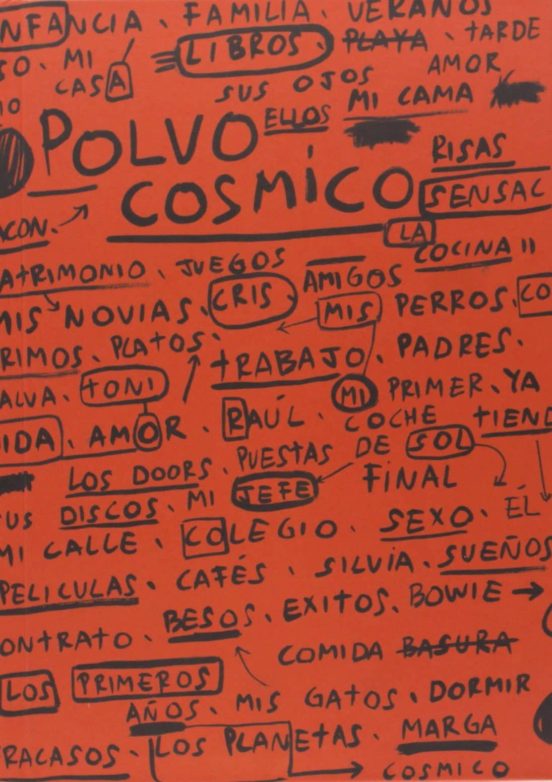 NFANCIA. FAMILIA. VERANOS
SO. MI LIBROS. PLAYA. TARDE
CASA SUS OJOS AMOR
ELLOS MI CAMA
POLVO
RISAS
COSMICO SENSAC
CON. LA
COCINA II
ATRIMONIO. JUEGOS
MIS NOVIAS. CRIS. AMIGOS
MIS PERROS. CO
RIMOS. PLATOS.
TRABAJO. PADRES.
ALVA. TONI MI PRIMER. YA
IDA. AMOR. RAÚL. COCHE TIEN
LOS DOORS. PUESTAS DE SOL
US DISCOS. MI JEFE FINAL
MI CALLE. COLEGIO. SEXO. ÉL
PELICULAS. CAFÉS. SILVIA. SUEÑOS
BESOS. EXITOS. BOWIE
ONTRATO. COMIDA BASURA
LOS PRIMEROS
AÑOS. MIS GATOS. DORMIR
RACASOS. LOS PLANETAS. MARGA
COSMICO